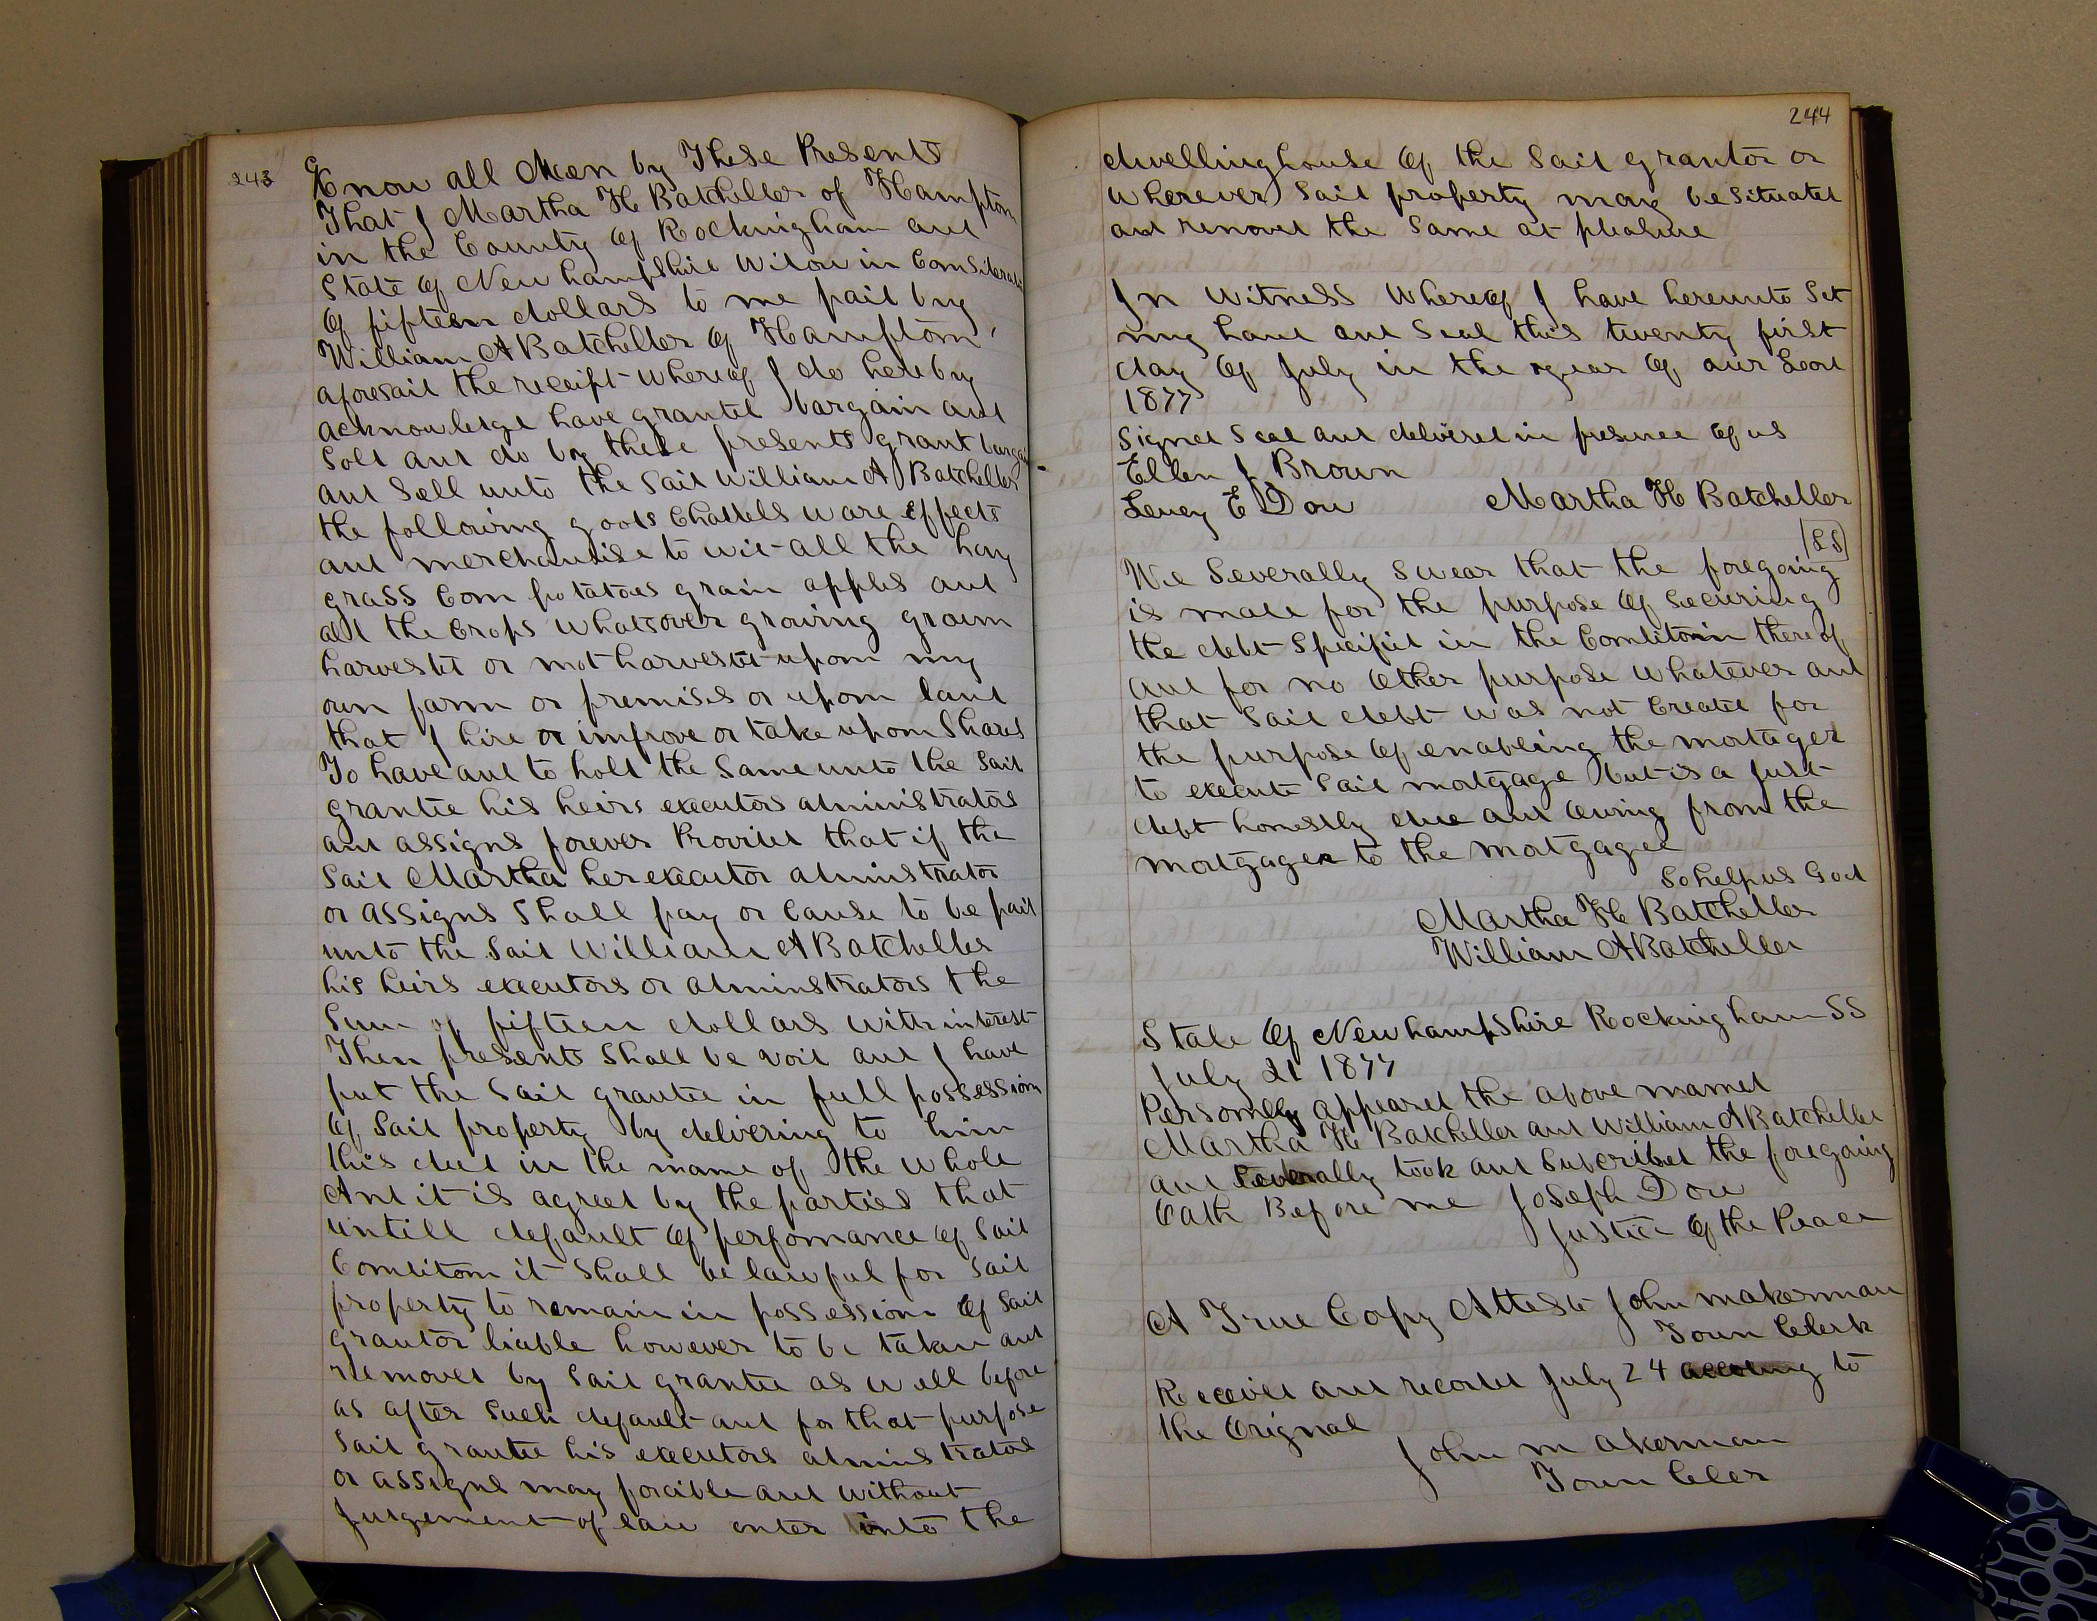 243
Know all Men by These Presents
That I Martha H Batcheller of Hampton
in the County of Rockingham and
State of New hampshire Widow in Consideration
Of fifteen dollars to me paid by
William A Batcheller of Hampton
aforesaid the receipt whereof I do hereby
acknowledge have granted bargain and
Sold and do by these presents grant bargain
and Sell unto the Said William A Batcheller
the following goods Chattels ware Effects
and merchandise to wit all the hay
grass Corn potatoes grain apples and
all the Crops whatsover growing grown
harvested or not harvested upon my
own farm or premises or upon land
that I hire or improve or take upon Shares
To have and to hold the Same unto the Said
grantee his heirs executors administrators
and assigns forever Provided that if the
Said Martha her executor adminstrator
or assigns Shall pay or Cause to be paid
unto the Said William A Batcheller
his heirs executors or adminstrators the
Sum of fifteen dollars with interest
Then presents Shall be void and I have
put the Said grantee in full possession
Of Said property by delivering to him
this deed in the name of the whole
And it is agreed by the parties that
untill default Of perfomance of Said
Conditom it Shall be lawful for Said
property to remain in possession Of Said
grantor liable however to be taken and
removed by Said grantee as well before
as after Such default and for that purpose
Said grantee his executors adminstrators
or assigns may forcible and without
Judgement of law enter into the
244
dwelling house Of the Said grantor or
wherever Said property may be Situated
and removed the Same at pleasure
In Witness Whereof I have hereunto Set
my hand and Seal this twenty first
day Of July in the year Of our Lord
1877
Signed Seal and delivered in presence Of us
Ellen J Brown
Lucy E Dow Martha H Batcheller
LS
We Severally Swear that the foregoing
is made for the purpose Of Securing
the debt Specified in the Conditoin thereof
and for no Other purpose whatever and
that Said debt was not Created for
the purpose Of enabling the mortager
to execute Said mortgage but is a Just
debt honestly due and Owing from the
mortgager to the mortgagee
So help us God
Martha H Batcheller
William A Batcheller
State Of New hampshire Rockingham SS
July 21 1877
Personely appeared the above named
Martha H Batcheller and William A Batcheller
and Severally took and Subcribed the foregoing
Oath Before me Joseph Dow
Justice Of the Peace
A True Copy Attest John m akerman
Town Clerk
Received and recorded July 24 according to
the Orignal
John m akerman
Town Cler